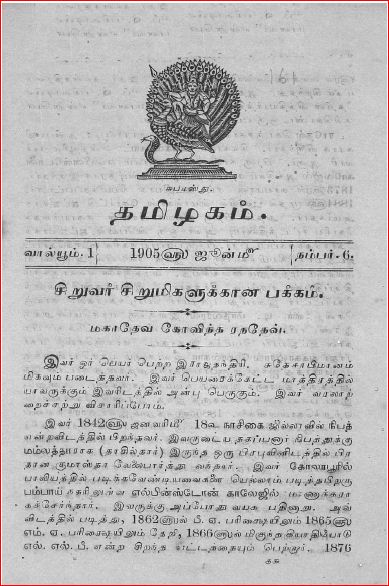 சுபமஸ்து.
தமிழகம்.
வால்யூம். 1 1905௵ ஜூன்௴ நம்பர். 6.
சிறுவர் சிறுமிகளுக்கான பக்கம்.
மகாதேவ கோவிந்த ரநதேவ்.
இவர் ஓர் பெயர் பெற்ற இராஜதந்திரி. சுதேசாபிமானம்
மிகவும் படைத்தவர். இவர் பெயரைக்கேட்ட மாத்திரத்தில்
யாவருக்கும் இவரிடத்தில் அன்பு பெருகும். இவர் வரலாற்
றைச்சற்று விசாரிப்போம்.
இவர் 1842௵ ஜனவரி௴ 18௳ நாசிகை ஜில்லாவில் நிபத்
என்றவிடத்தில் பிறந்தவர். இவருடைய தகப்பனார் நிபத்துக்கு
மம்லத்தாராக (தாசில்தார்) இருந்த ஒரு பிரபுவினிடத்தில் பிர
தான குமாஸ்தா வேலைபார்த்து வந்தவர். இவர் கோலாபூரில்
பாலியத்தில் படிக்கவேண்டியவைகளை யெல்லாம் படித்தபிறகு
பம்பாய் நகரிலுள்ள எல்பின்ஸ்டோன் காலேஜில் மாணாக்கரா
கச்சேர்ந்தார். இவருக்கு அப்போது வயசு பதினாறு. அவ்
விடத்தில் படித்து, 1862௵ல் பீ. ஏ. பரிக்ஷையிலும் 1865௵ல்
எம். ஏ. பரிக்ஷையிலும் தேறி, 1866௵ல் மிகுந்தகியாதியோடு
எல். எல். பீ. என்ற சிறந்த பட்டத்தையும் பெற்றார். 1876